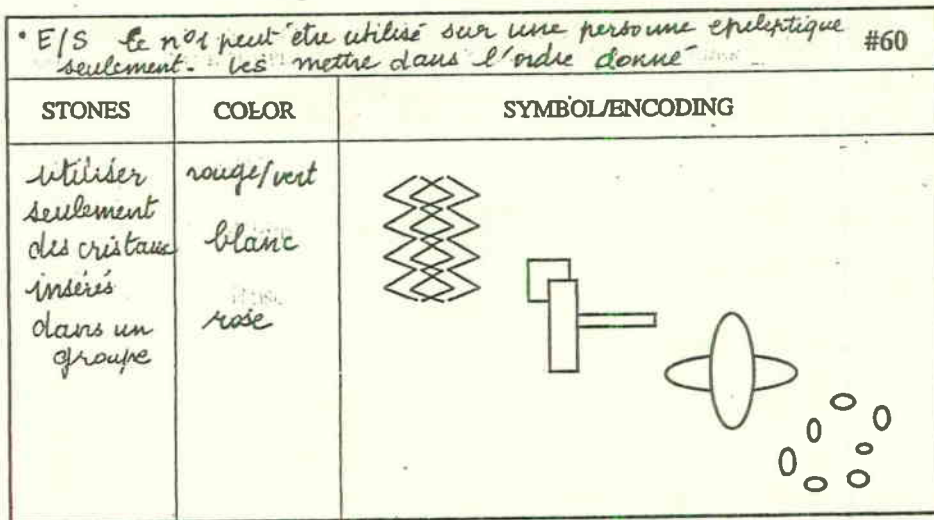 • E/S le n°1 peut être utilisé sur une personne epileptique
seulement. Les mettre dans l'ordre donné
#60
STONES
COLOR
SYMBOL/ENCODING
utiliser
seulement
des cristaux
insérés
dans un
groupe
rouge/vert
blanc
rose